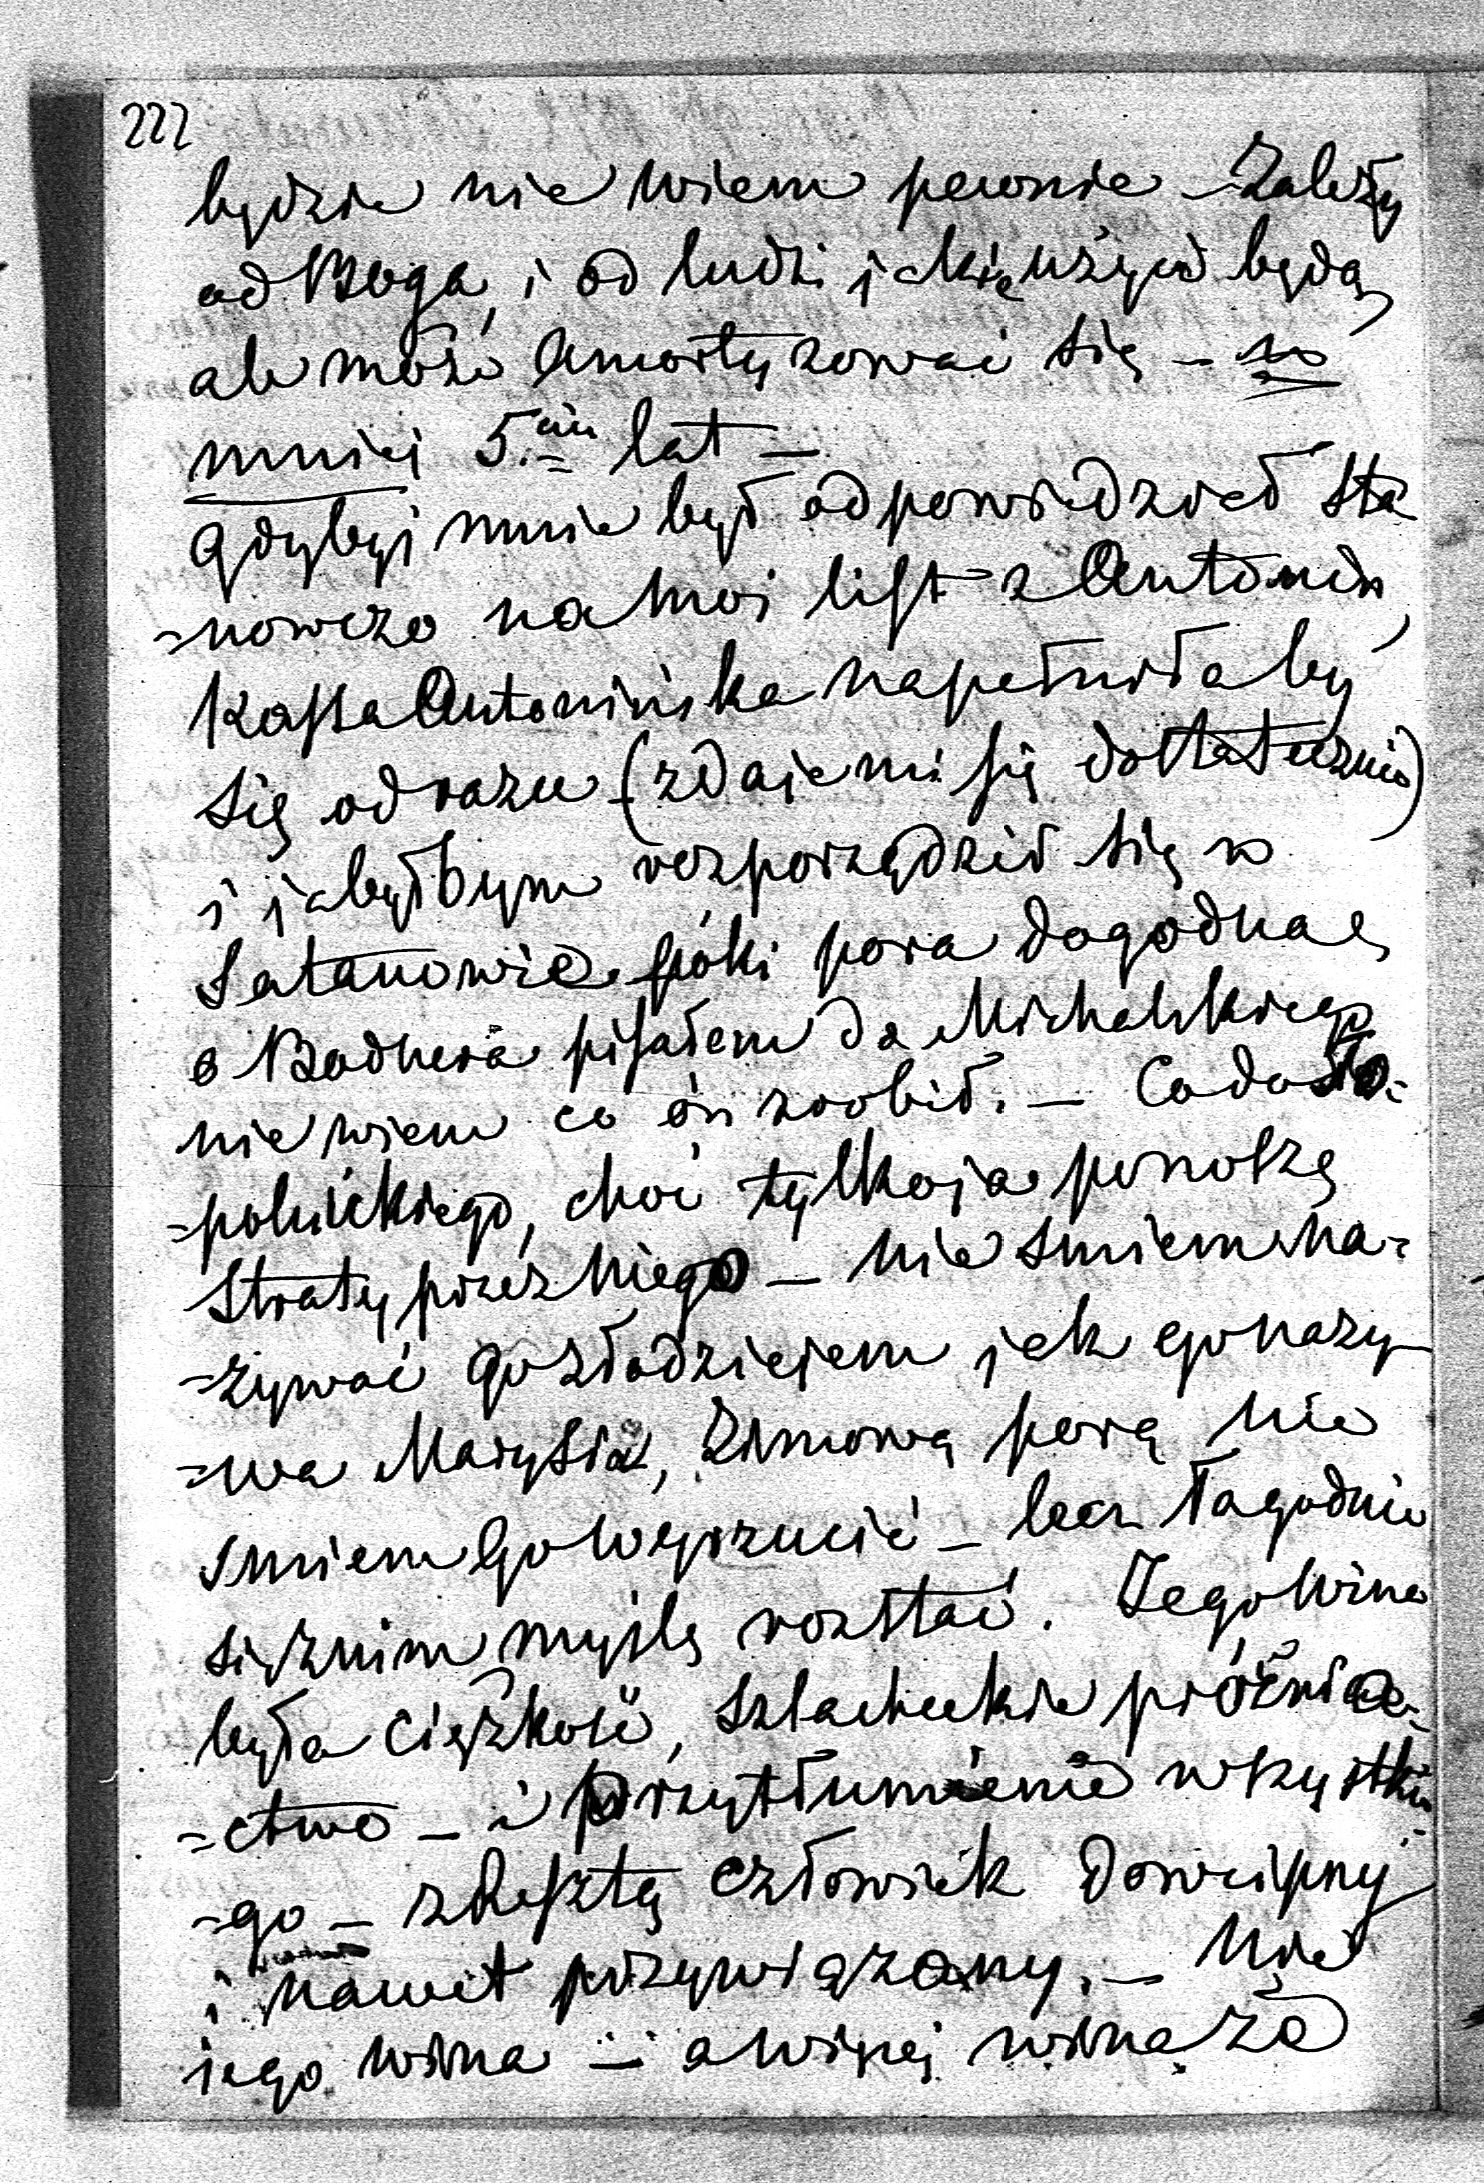 222
będzie nie wiem pewnie – Zależy
od Boga, i od ludzi jakie użyci będą,
ale może Amortyzować się – w
mniej 5.ciu lat –
Gdybyś mnie był odpowiedział sta
=nowczo na mój list z Antonin,
Kassa Antonińska napełniła by
się od razu (zdaje mi się dostatecznie)
i ja byłbym rozporządził się w
Satanowie póki pora dogodna,
o Badnera pisałem do Michalskiego
nie wiem co on zrobił. – Co do Sło-
=polnickiego, choć tylko ja ponoszę
Straty przez niego – nie śmiem na-
=zywać go złodziejem jak go nazy
=wa Marysia, Zimową porą nie
śmiem Go wyrzucić – lecz łagodnie
się z nim myślę rozstać. Jego wina
była Ciężkość, szlacheckie próżnia-
=ctwo – i Przytłumienie wszystkie-
=go – z Resztą człowiek Dowcipny
i nawet przywiązany. – Nie
jego wina – a więcej winą za